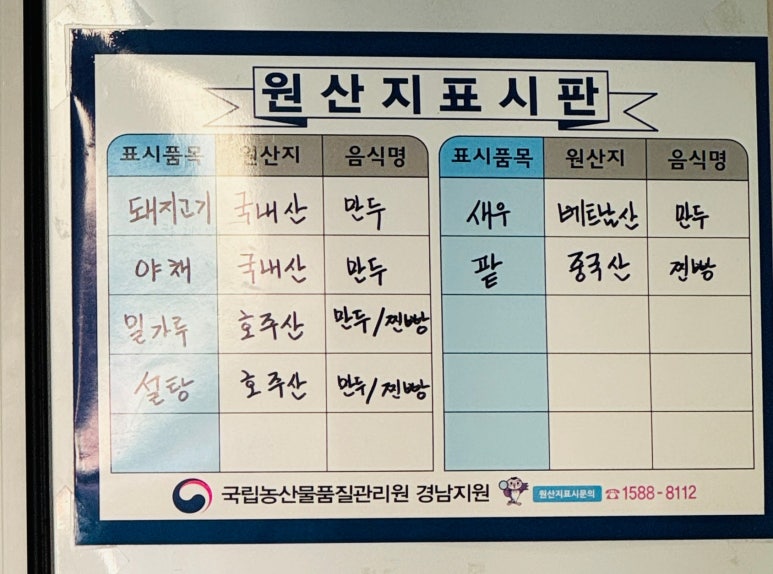 원산지표시판
표시품목 원산지 음식명
돼지고기 국내산 만두
야채 국내산 만두
밀가루 호주산 만두/찐빵
설탕 호주산 만두/찐빵
표시품목 원산지 음식명
새우 베트남산 만두
팥 중국산 찐빵
국립농산물품질관리원 경남지원 원산지표시문의 ☎1588-8112